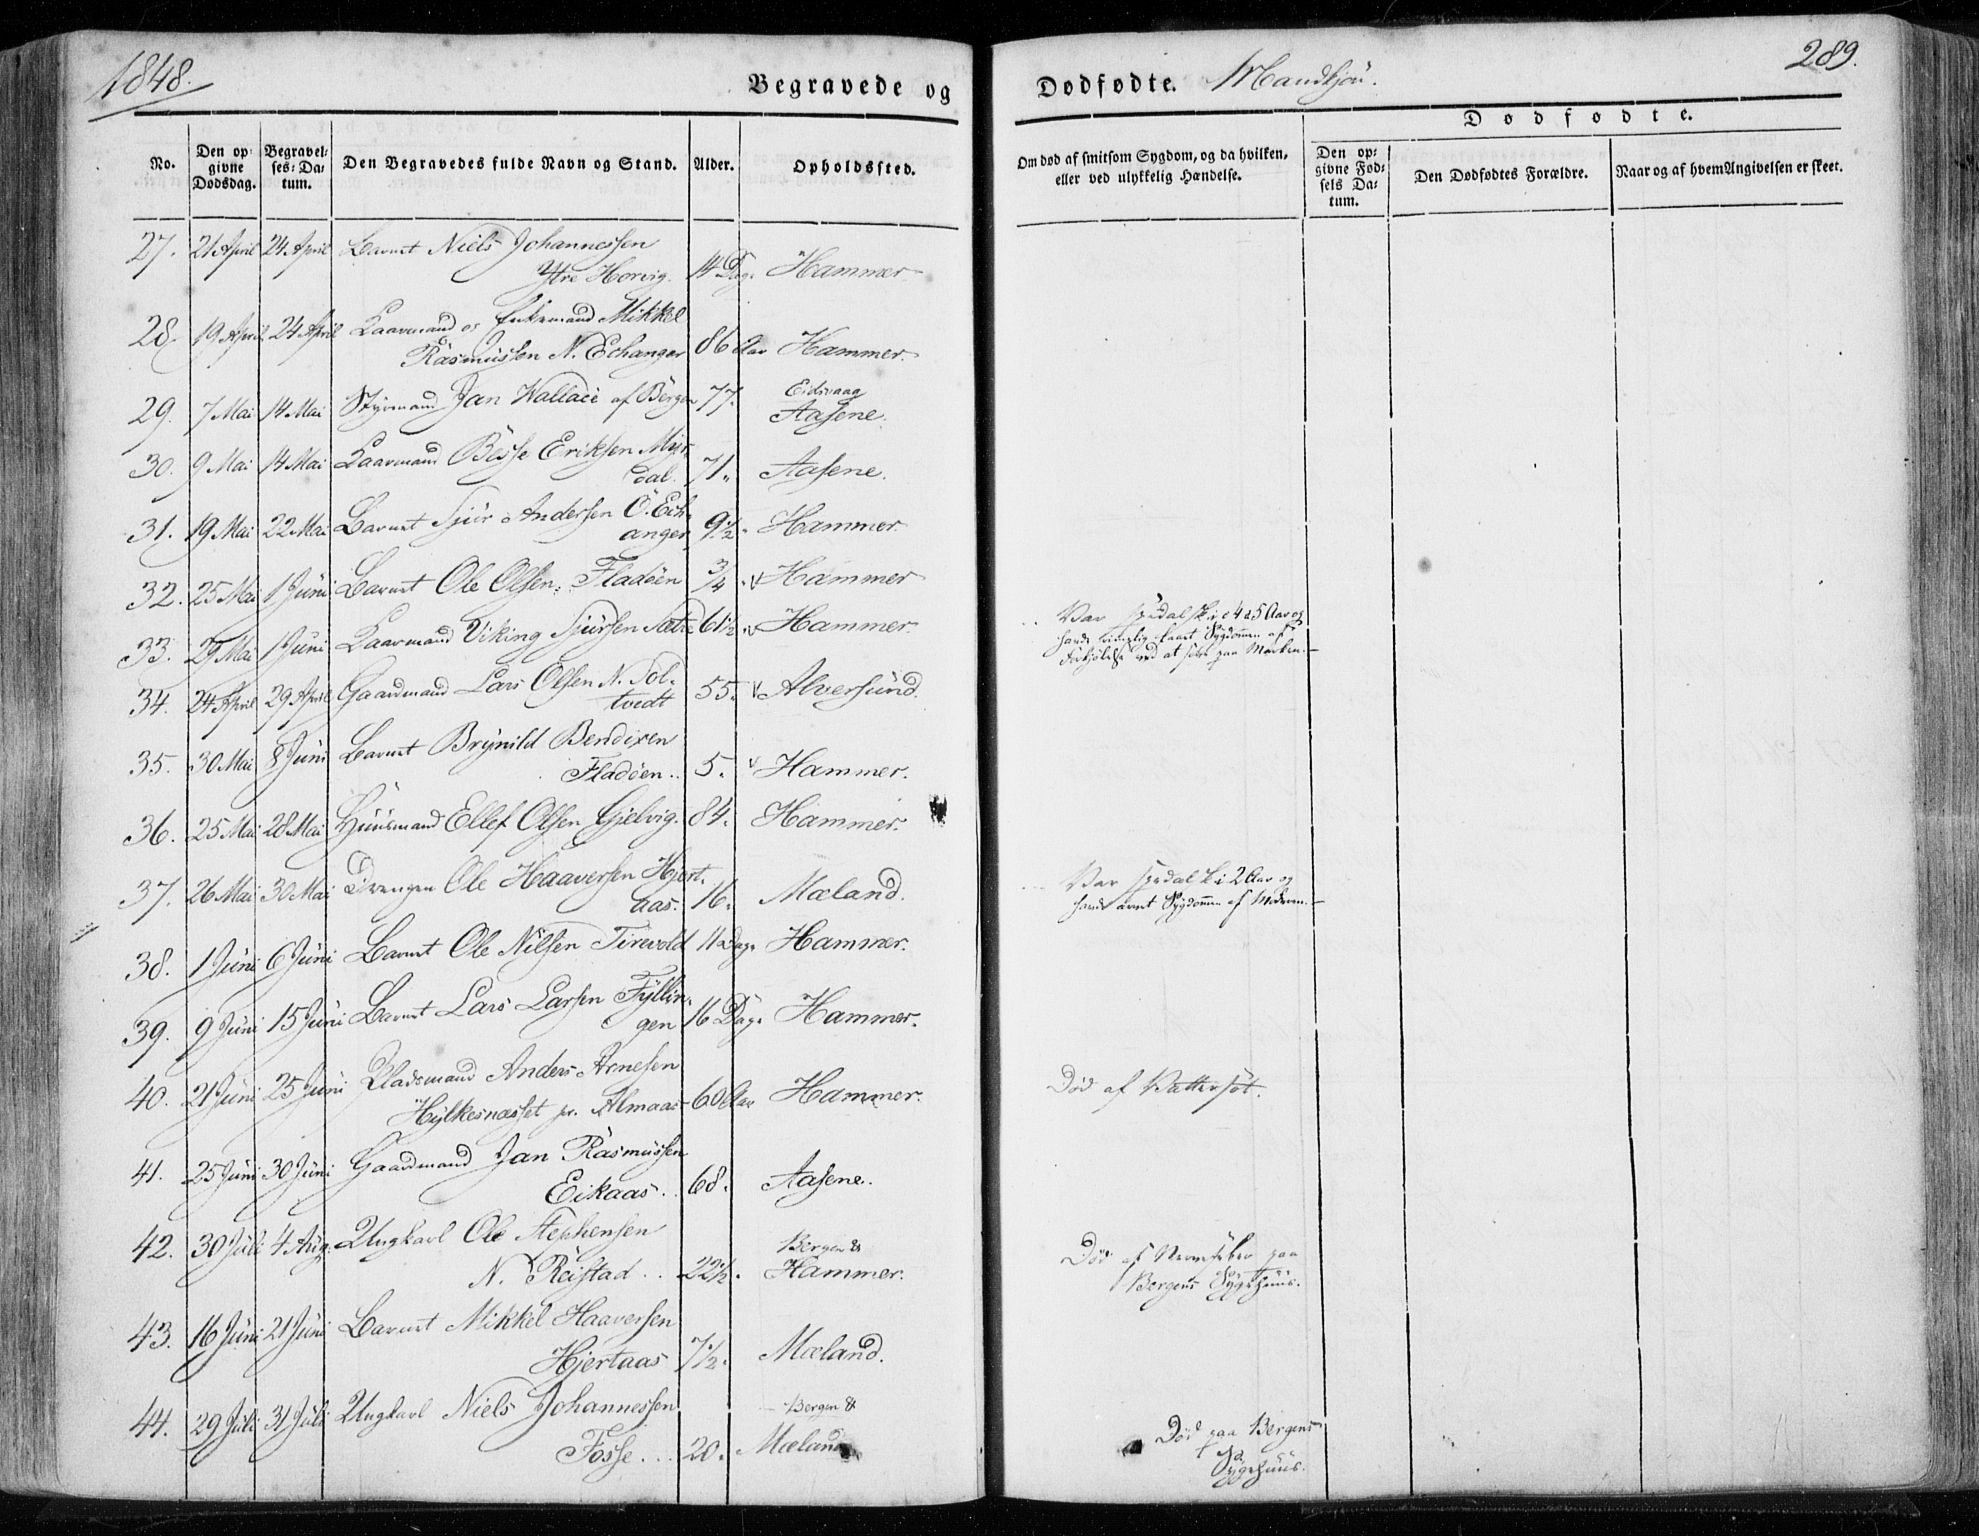 1848.
Begravede og
Dødfødte. Mandkjøn.
289.
No.
Den opgivne Dødsdag.
Begravelses-Datum.
Den Begravedes fulde Navn og Stand.
Alder.
Opholdssted.
Om død af smitsom Sygdom, og da hvilken, eller ved ulykkelig Hændelse.
Dødfødte.
Den opgivne Fødsels Datum.
Den Dødfødtes Forældre.
Naar og af hvem Angivelsen er skeet.
27. 21 April 24 April Barnet Niels Johannessen
Ytre Horvig. 14 Dage Hammer
28. 19 April 24 April Kaarmand og Enkemand Mikkel
Rasmussen N. Echanger 86 Aar Hammer.
29. 7 Mai 14 Mai Styrmand Jan Wallace af Bergen 77. Eidsvaag
Aasene.
30. 9 Mai 14 Mai Kaarmand Besse Eriksen Myr
dal. 71. Aasene.
31. 19 Mai 22 Mai Barnet Sjur Andersen Ö. Ech
anger 9 1/2. Hammer
32. 25 Mai 1 Juni Barnet Ole Olsen Fladöen 3/4. v Hammer
33. 29 Mai 1 Juni Kaarmand Viking Sjursen Sætre 61 1/2. v Hammer. Var spedalsk i 4 a 5 Aar og
havde rimelig faaet Sygdommen af
Forkjølelse ved at sove paa Marken.
34. 24 April 29 April Gaardmand Lars Olsen N. Tol
tvedt 55. v Alversund.
35. 30 Mai 8 Juni Barnet Brynild Bendixen
Fladöen. 5. v Hammer.
36. 25 Mai 28 Mai Huusmand Ellef Olsen Gjelvig. 84. Hammer.
37. 26 Mai 30 Mai Drengen Ole Haaversen Hjert
aas. 16. Mæland. Var spedalsk i 2 Aar og
havde arvet Sygdommen af Moderen.
38. 1 Juni 6 Juni Barnet Ole Nilsen Tirevold 11 Dage Hammer.
39. 9 Juni 15 Juni Barnet Lars Larsen Fyllin
gen 16 Dage Hammer.
40. 21 Juni 25 Juni Pladsmand Anders Arnesen
Hylkesnæsset pr. Almaas 60 Aar Hammer. Död af Vattersot.
41. 25 Juni 30 Juni Gaardmand Jan Rasmussen
Eikaas. 68. Aasene.
42. 30 Juli 4 Aug. Ungkarl Ole Stephensen Bergen & Död af Nervefeber paa
N. Reistad 22 1/2. Hammer. Bergens Sygehuus.
43. 16 Juni 21 Juni Barnet Mikkel Haaversen
Hjertaas 7 1/2. Mæland.
44. 29 Juli 31 Juli Ungkarl Niels Johannessen Bergen & Död paa Bergens
Fosse. 20. Mæland Sygehuus.